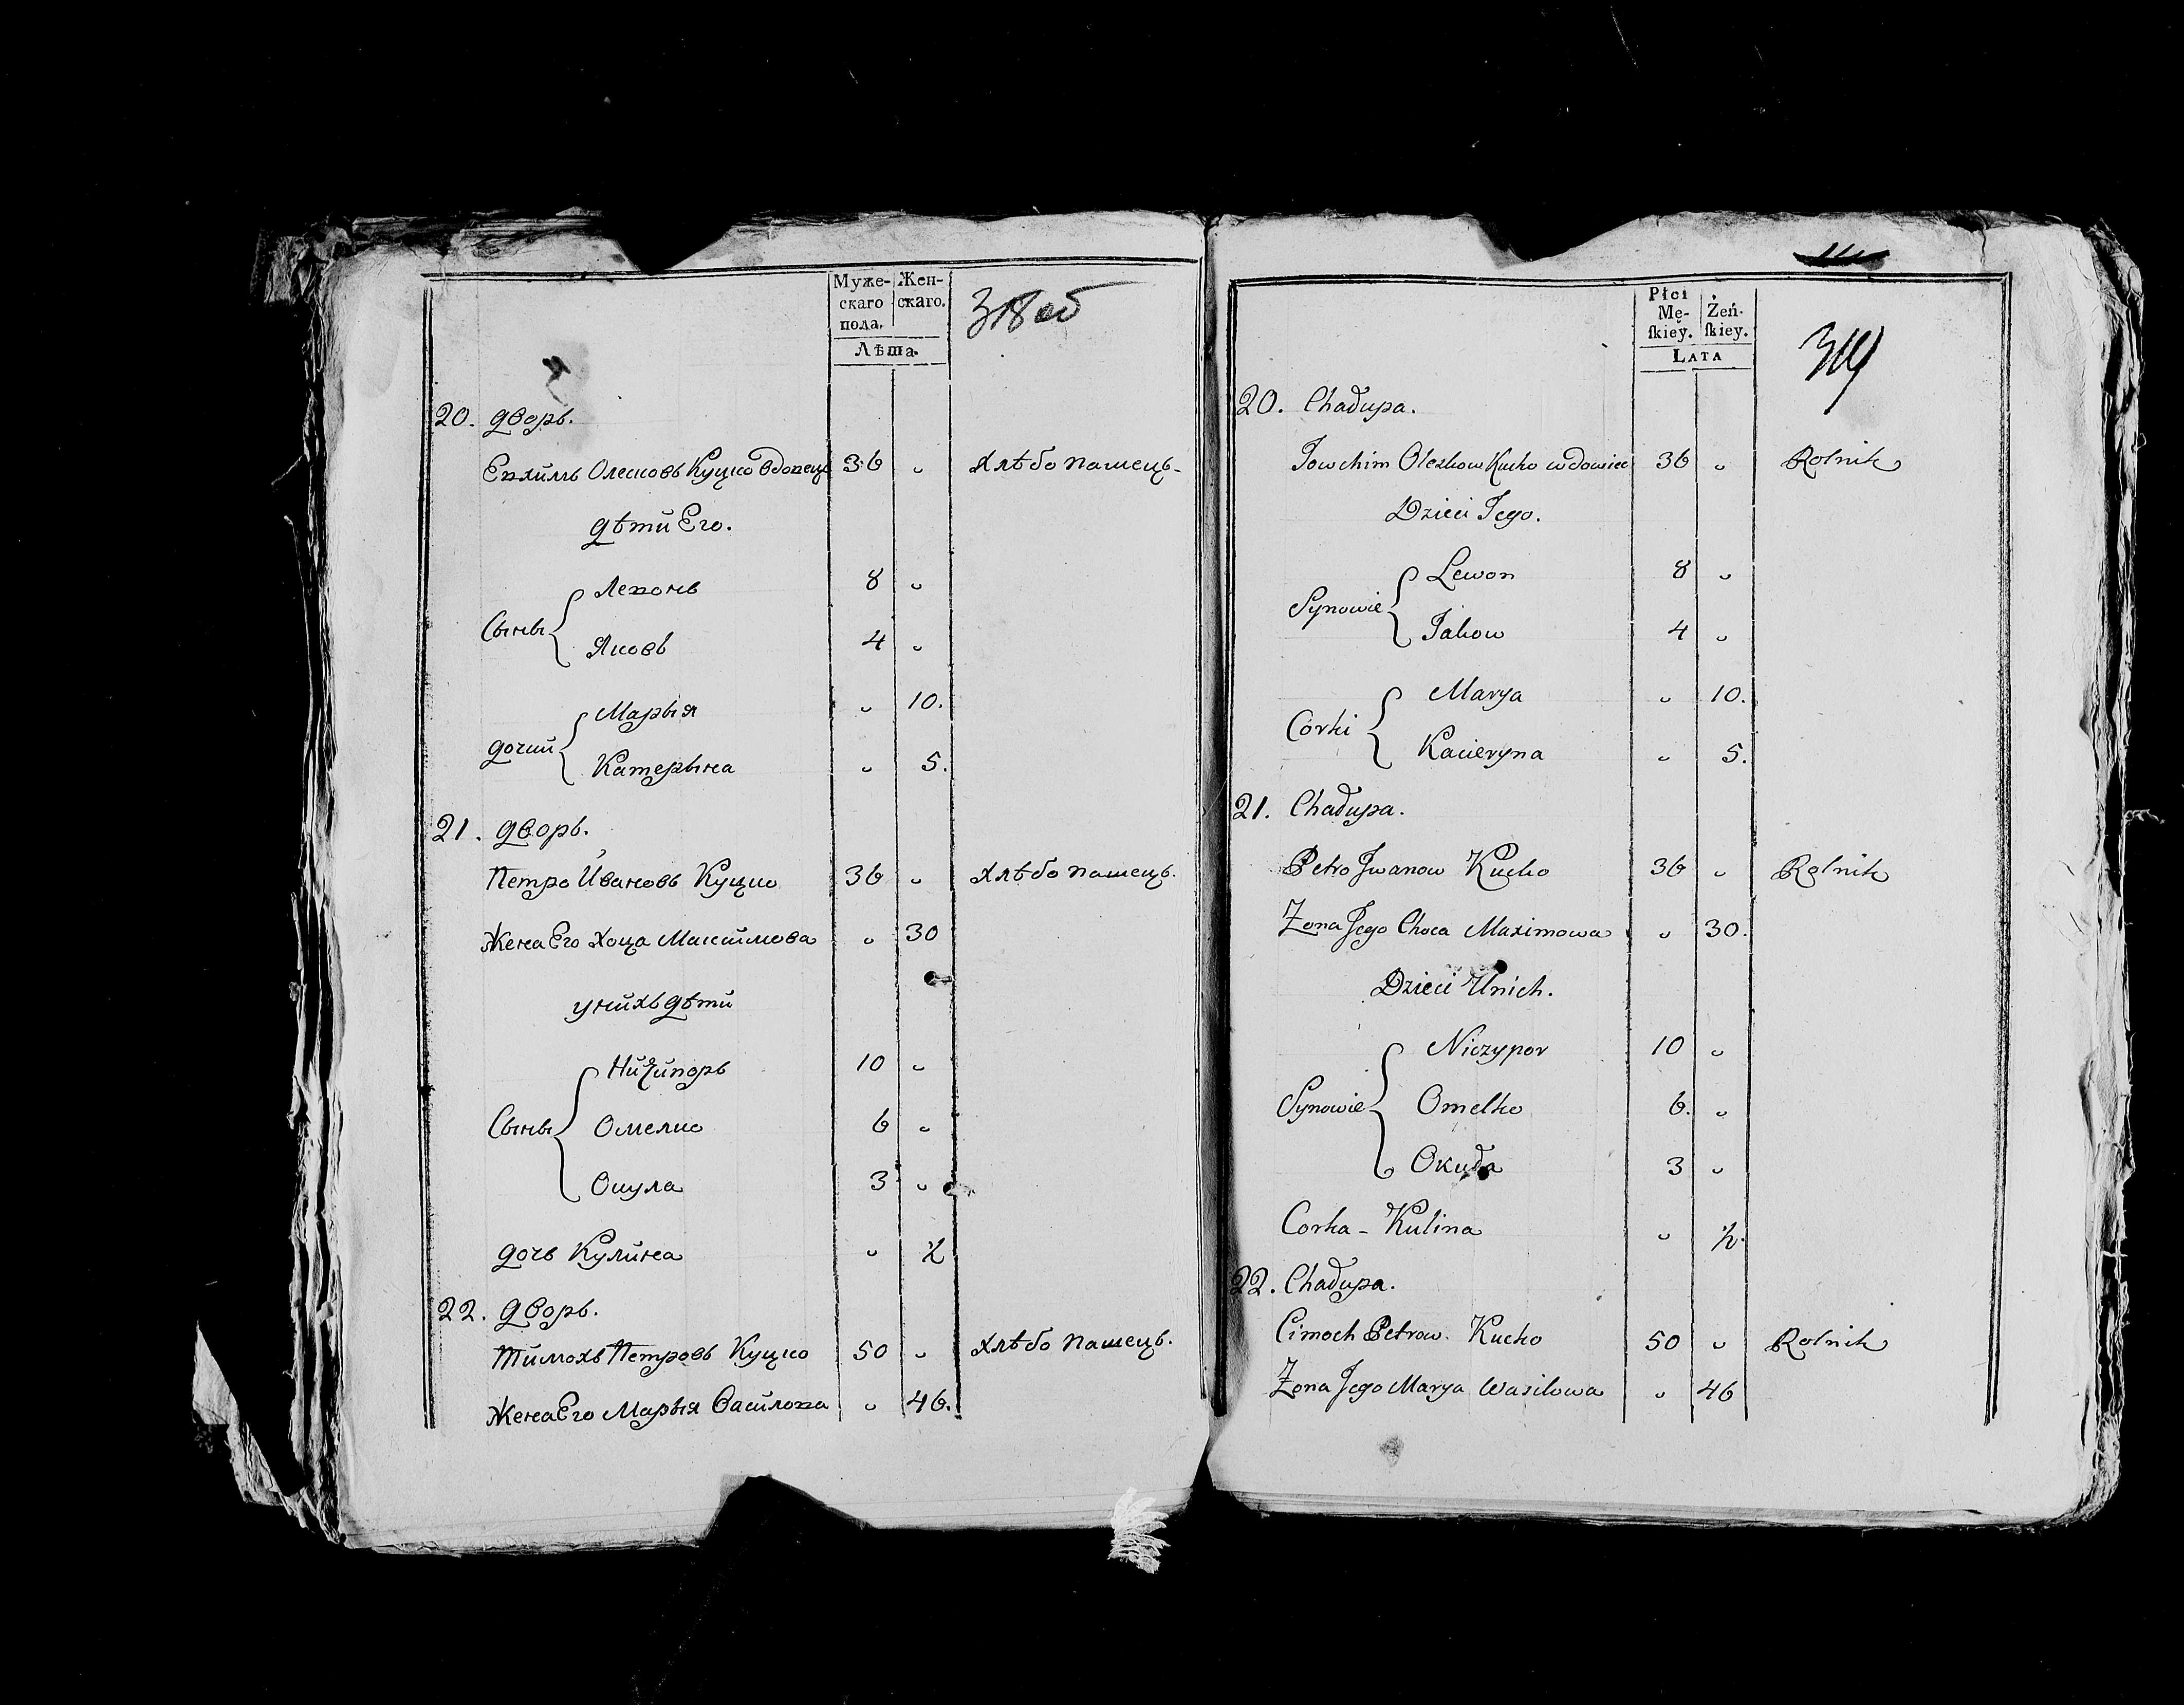 Муже- Жен-
скаго скаго.
пола.
Лѣта.
318 об
20. дворъ.
Евхимъ Олесковъ Куцко вдовецъ 36 „ хлѣбопашецъ
дѣти Его.
Сыны Левонъ 8 „
Яковъ 4 „
дочки Марыя „ 10.
Катерына „ 5.
21. дворъ.
Петро Ивановъ Куцко 36 „ хлѣбопашецъ.
Жена Его Хоца Максимова „ 30
у нихъ дѣти
Ничипоръ 10 „
Сыны Омелко 6 „
3 „
дочь Кулина „ ½
22. дворъ.
Тимохъ Петровъ Куцко 50 „ хлѣбопашецъ.
Жена Его Марыя Василова „ 46.
Płci Żeń-
Mę- ſkiey.
ſkiey.
LATA
319
20. Chałupa.
Jowchim Oleskow Kucko wdowiec 36 „ Rolnik
Dzieci Jego.
Synowie Lewon 8 „
Jakow 4 „
Córki Marya „ 10.
Kacieryna „ 5.
21. Chałupa.
Petro Jwanow Kucko 36 „ Rolnik
Zona Jego Choca Maximowa „ 30.
Dzieci Unich.
Niczypor 10 „
Synowie Omelko 6. „
3 „
Corka - Kulina „ ½.
22. Chałupa.
Cimoch Petrow. Kucko 50 „ Rolnik
Zona Jego Marya Wasilowa „ 46